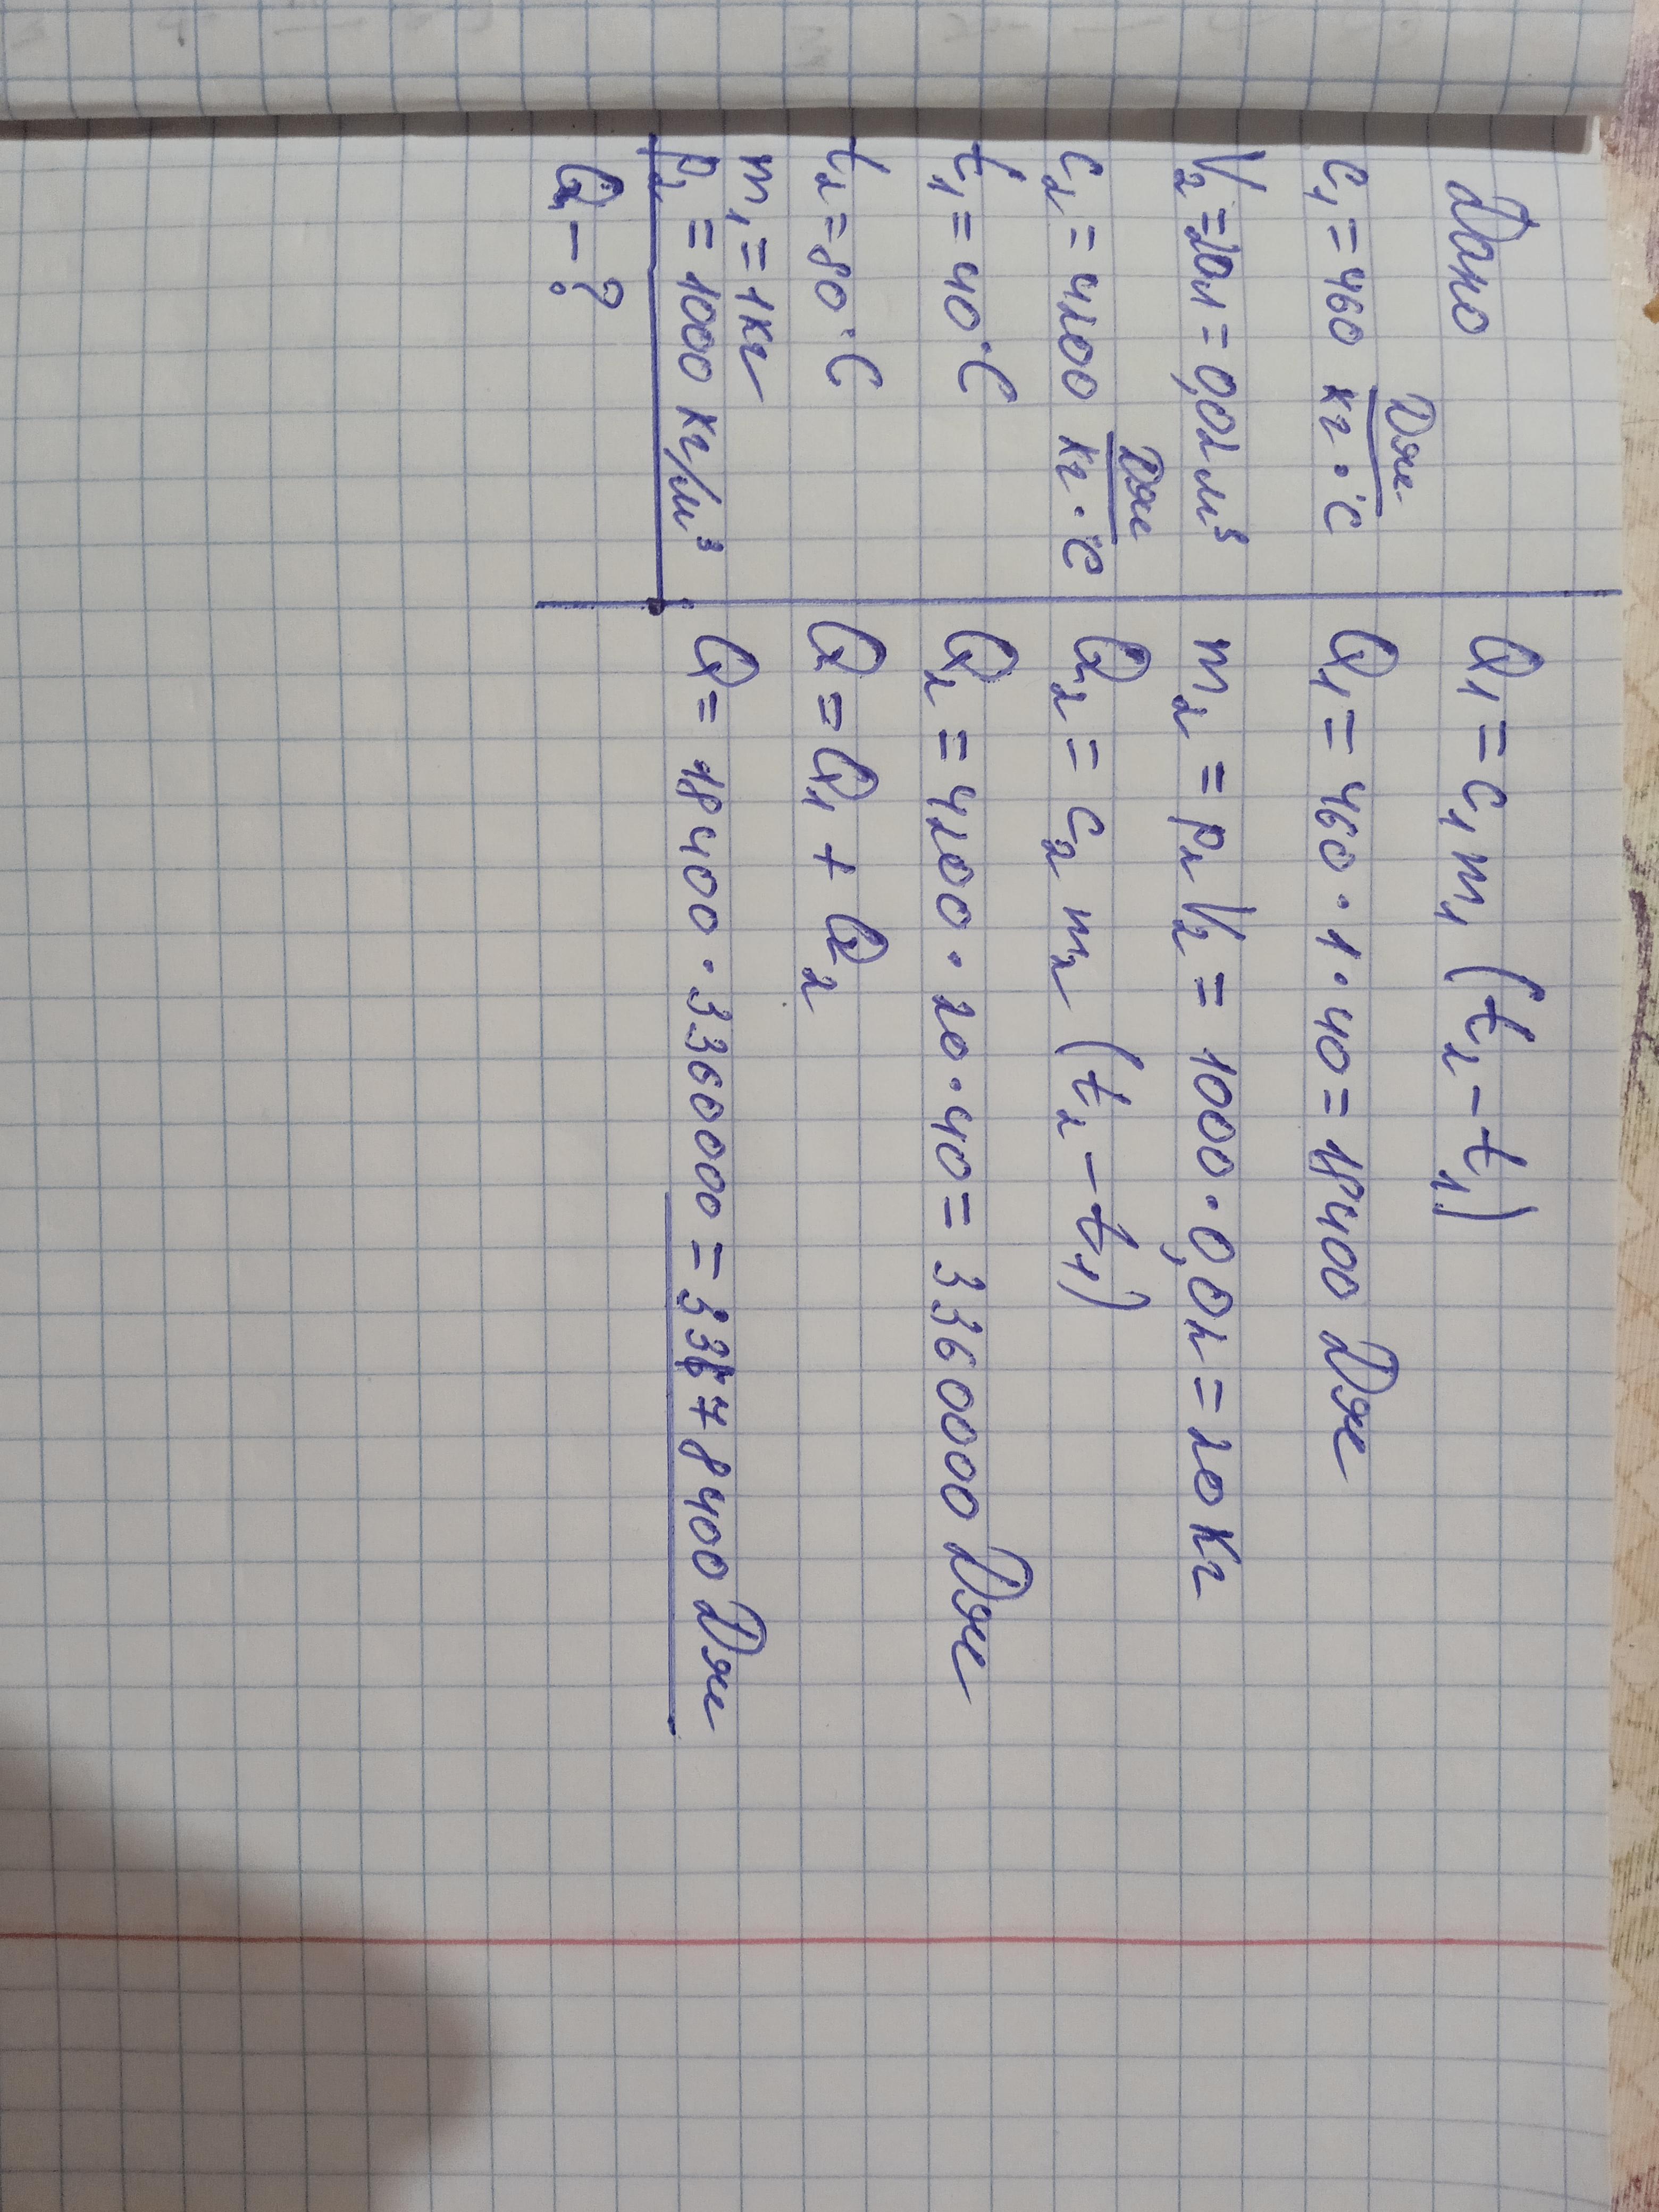 Дано
c₁ = 460 Дж/кг·°C
V₂ = 20л = 0,02 м³
c₂ = 4200 Дж/кг·°C
t₁ = 40°C
t₂ = 80°C
m₁ = 1кг
ρ₂ = 1000 кг/м³
Q - ?
Q₁ = c₁ m₁ (t₂ - t₁)
Q₁ = 460 · 1 · 40 = 18400 Дж
m₂ = ρ₂ V₂ = 1000 · 0,02 = 20 кг
Q₂ = c₂ m₂ (t₂ - t₁)
Q₂ = 4200 · 20 · 40 = 3360000 Дж
Q = Q₁ + Q₂
Q = 18400 · 3360000 = 3378400 Дж